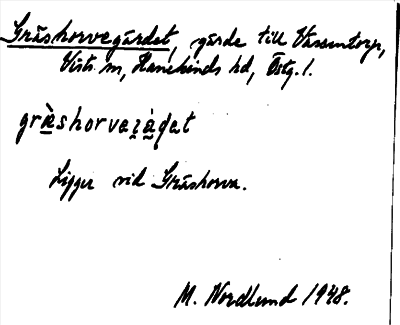 Gräshorvegärdet, gärde till Vässentorp,
Vists sn, Hanekinds hd, Östg. l.
græ̀shorveʒæ̀ḍat
Ligger vid Gräshorva.
M. Nordlund 1948.